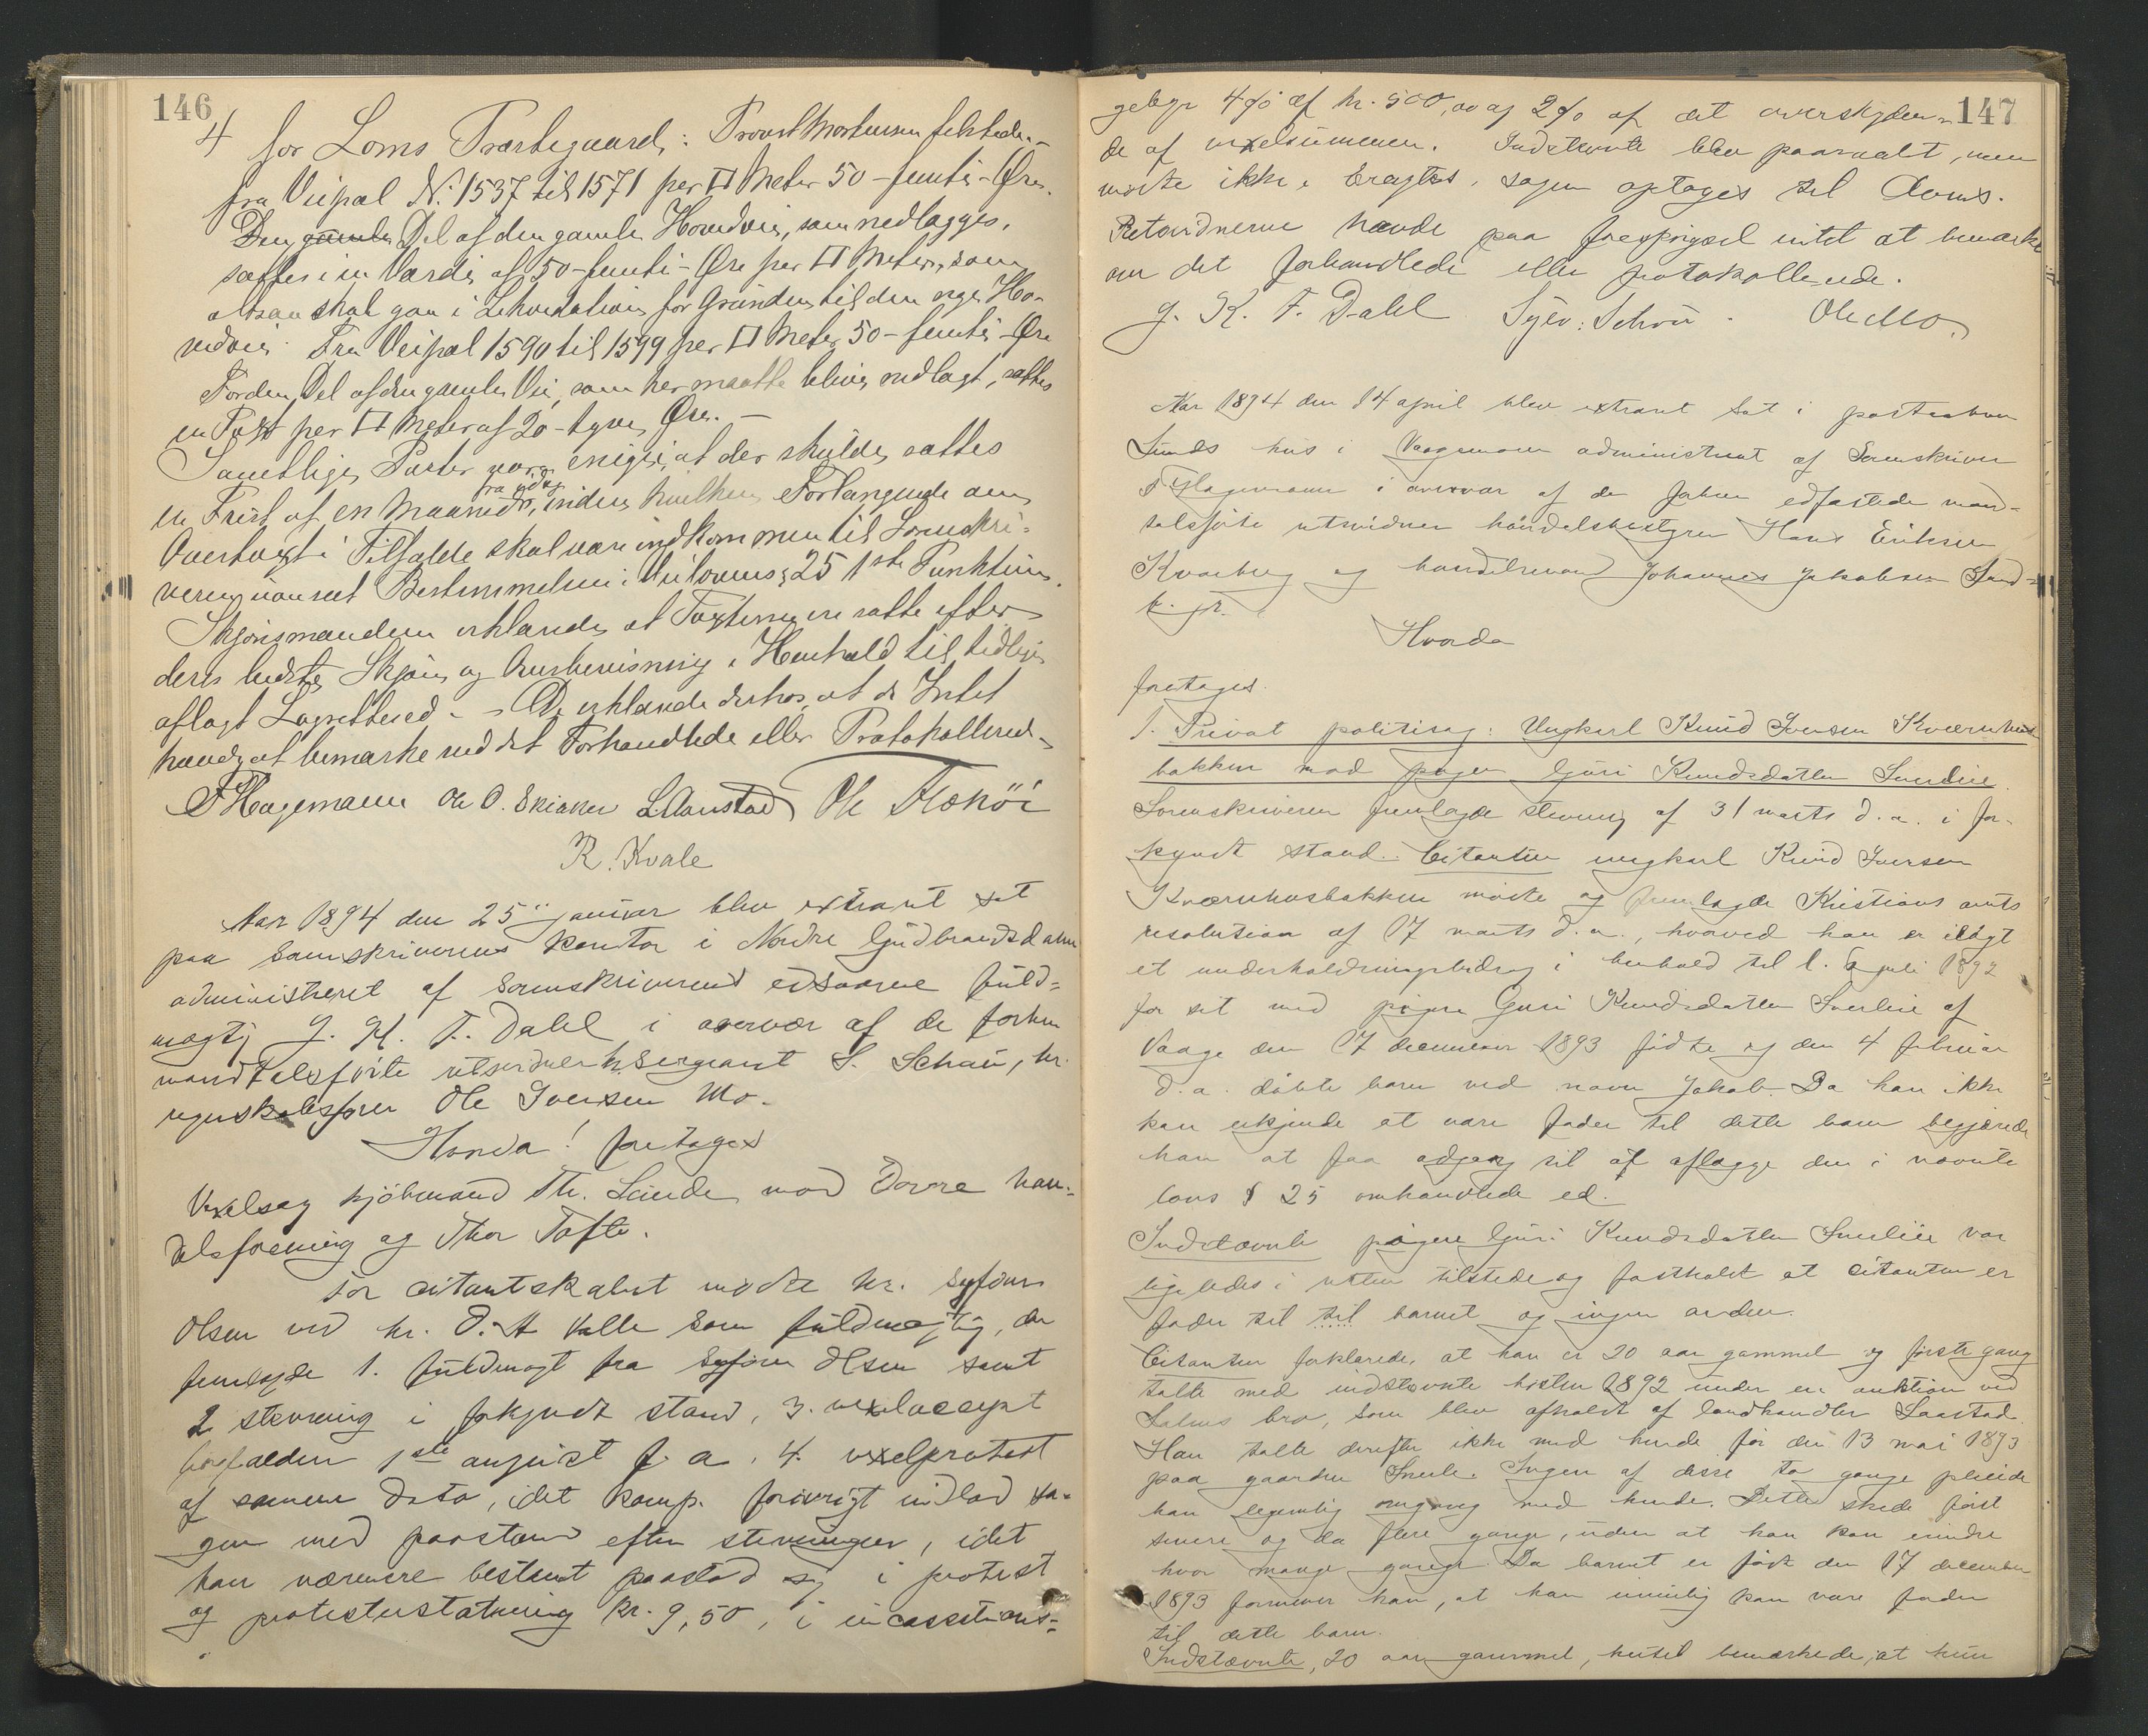 146
4 for Loms Præstegaard: Provst Mortensen tilstede. –
fra Veipæl No. 1537 til 1571 per □ Meter 50 – femti – Øre.
Den gamle Del af den gamle Hovedvei, som nedlægges,
sættes i en Værdi af 50 – femti – Øre per □ Meter, som
altsaa skal gaa i Likvidation for Grunden til den nye Ho-
vedvei. Fra Veipæl 1590 til 1599 per □ Meter 50 – femti – Øre
For den Del af den gamle Vei, som her maatte blive nedlagt, sattes
en Taxt per □ Meter af 20 – tyve Øre. –
Samtlige Parter vare enige i, at der skulde sættes
en Frist af en Maaned fra idag, inden hvilken Forlangende om
Overtaxt i Tilfælde skal være indkommen til Sorenskri-
veren uanseet Bestemmelsen i Veilovens § 25 1ste Punktum.
Skjønsmændene erklærede, at Taxterne ere satte efter
deres bedste Skjøn og Overbevisning i Henhold til tidligere
aflagt Lagretteed. – De erklærede derhos, at de Intet
havde at bemærke ved det Forhandlede eller Protokollerede.
F Hagemann Ole O. Skjåker L. Aanstad Ole Flekøi
R. Kvale
Aar 1894 den 25 januar blev extraret sat
paa sorenskriverens kontor i Nordre Gudbrandsdalen
administreret af sorenskriverens edsvorne fuld-
mægtig J. K. F. Dahl i overvær af de forhen
mandtalsførte retsvidner hr. sergeant S. Schou, hr.
regnskabsfører Ole Iversen Mo.
Hvorda! foretages
Vexelsag kjøbmand Th. Lunde mod Dovre han-
delsforening og Thor Tofte.
For citantskabet mødte hr. sagfører
Olsen ved hr. O. A Kolle som fuldmægtig, der
fremlagde 1. fuldmagt fra sagfører Olsen samt
2 stevning i forkyndt stand, 3. vexelaccept
forfalden 1ste august f. a. 4. vexelprotest
af samme dato, idet komp. forøvrigt indlod sa-
gen med paastand efter stevningen, idet
han nærmere bestemt paastod sig i protest
og protesterstatning kr. 9,50, i incassations-
147
gebyr 4 % af kr. 500,00 og 2 % af det overskyden-
de af vexelsummen. Indstevnte blev paaraabt, men
mødte ikke. Eragtes, sagen optages til Doms.
Retsvidnerne havde paa forespørgsel intet at bemærke
om det forhandlede eller protokollerede.
J. K. F. Dahl Sylv: Schou. Ole Mo.
Aar 1894 den 14 april blev extraret sat i postaabner
Sunds hus i Vaagemoen administreret af Sorenskriver
F Hagemann i overvær af de forhen edfæstede mand-
talsførte retsvidner handelsbestyrer Hans Eriksen
Kvarberg og handelsmand Johannes Jakobsen Sand-
b. jr.
Hvorda
foretages.
1. Privat politisag: Ungkarl Knud Iversen Kværnhus-
bakken mod pigen Guri Knudsdatter Snerlie.
Sorenskriveren fremlagde stevning af 31 marts d. a. i for-
kyndt stand. Citanten ungkarl Knud Iversen
Kværnhusbakken mødte og fremlagde Kristians amts
resolution af 17 marts d. a., hvorved han er ilagt
et underholdningsbidrag i henhold til l. 6 juli 1892
for sit med pigen Guri Knudsdatter Snerlie af
Vaage den 17 december 1893 fødte og den 4 februar
d. a. døbte barn ved navn Jakob. Da han ikke
kan erkjende at være fader til dette barn begjærede
han at faa adgang til at aflægge den i nævnte
lovs § 25 omhandlede ed.
Indstævnte pigen Guri Knudsdatter Snerlie var
ligeledes i retten tilstede og fastholdt at citanten er
fader til til barnet og ingen anden.
Citanten forklarede, at han er 20 aar gammel og første gang
talte med indstævnte høsten 1892 under en auktion ved
Lalms bro, som blev afholdt af landhandler Laastad.
Han talte derefter ikke med hende før den 13 mai 1893
paa gaarden Snerle. Ingen af disse to gange pleiede
han legemlig omgang med hende. Dette skede først
senere og da flere gange, uden at han kan erindre
hvor mange gange. Da barnet er født den 17 december
1893 formener han, at han umulig kan være fader
til dette barn.
Indstævnte, 20 aar gammel, hertil bemærkede, at hun